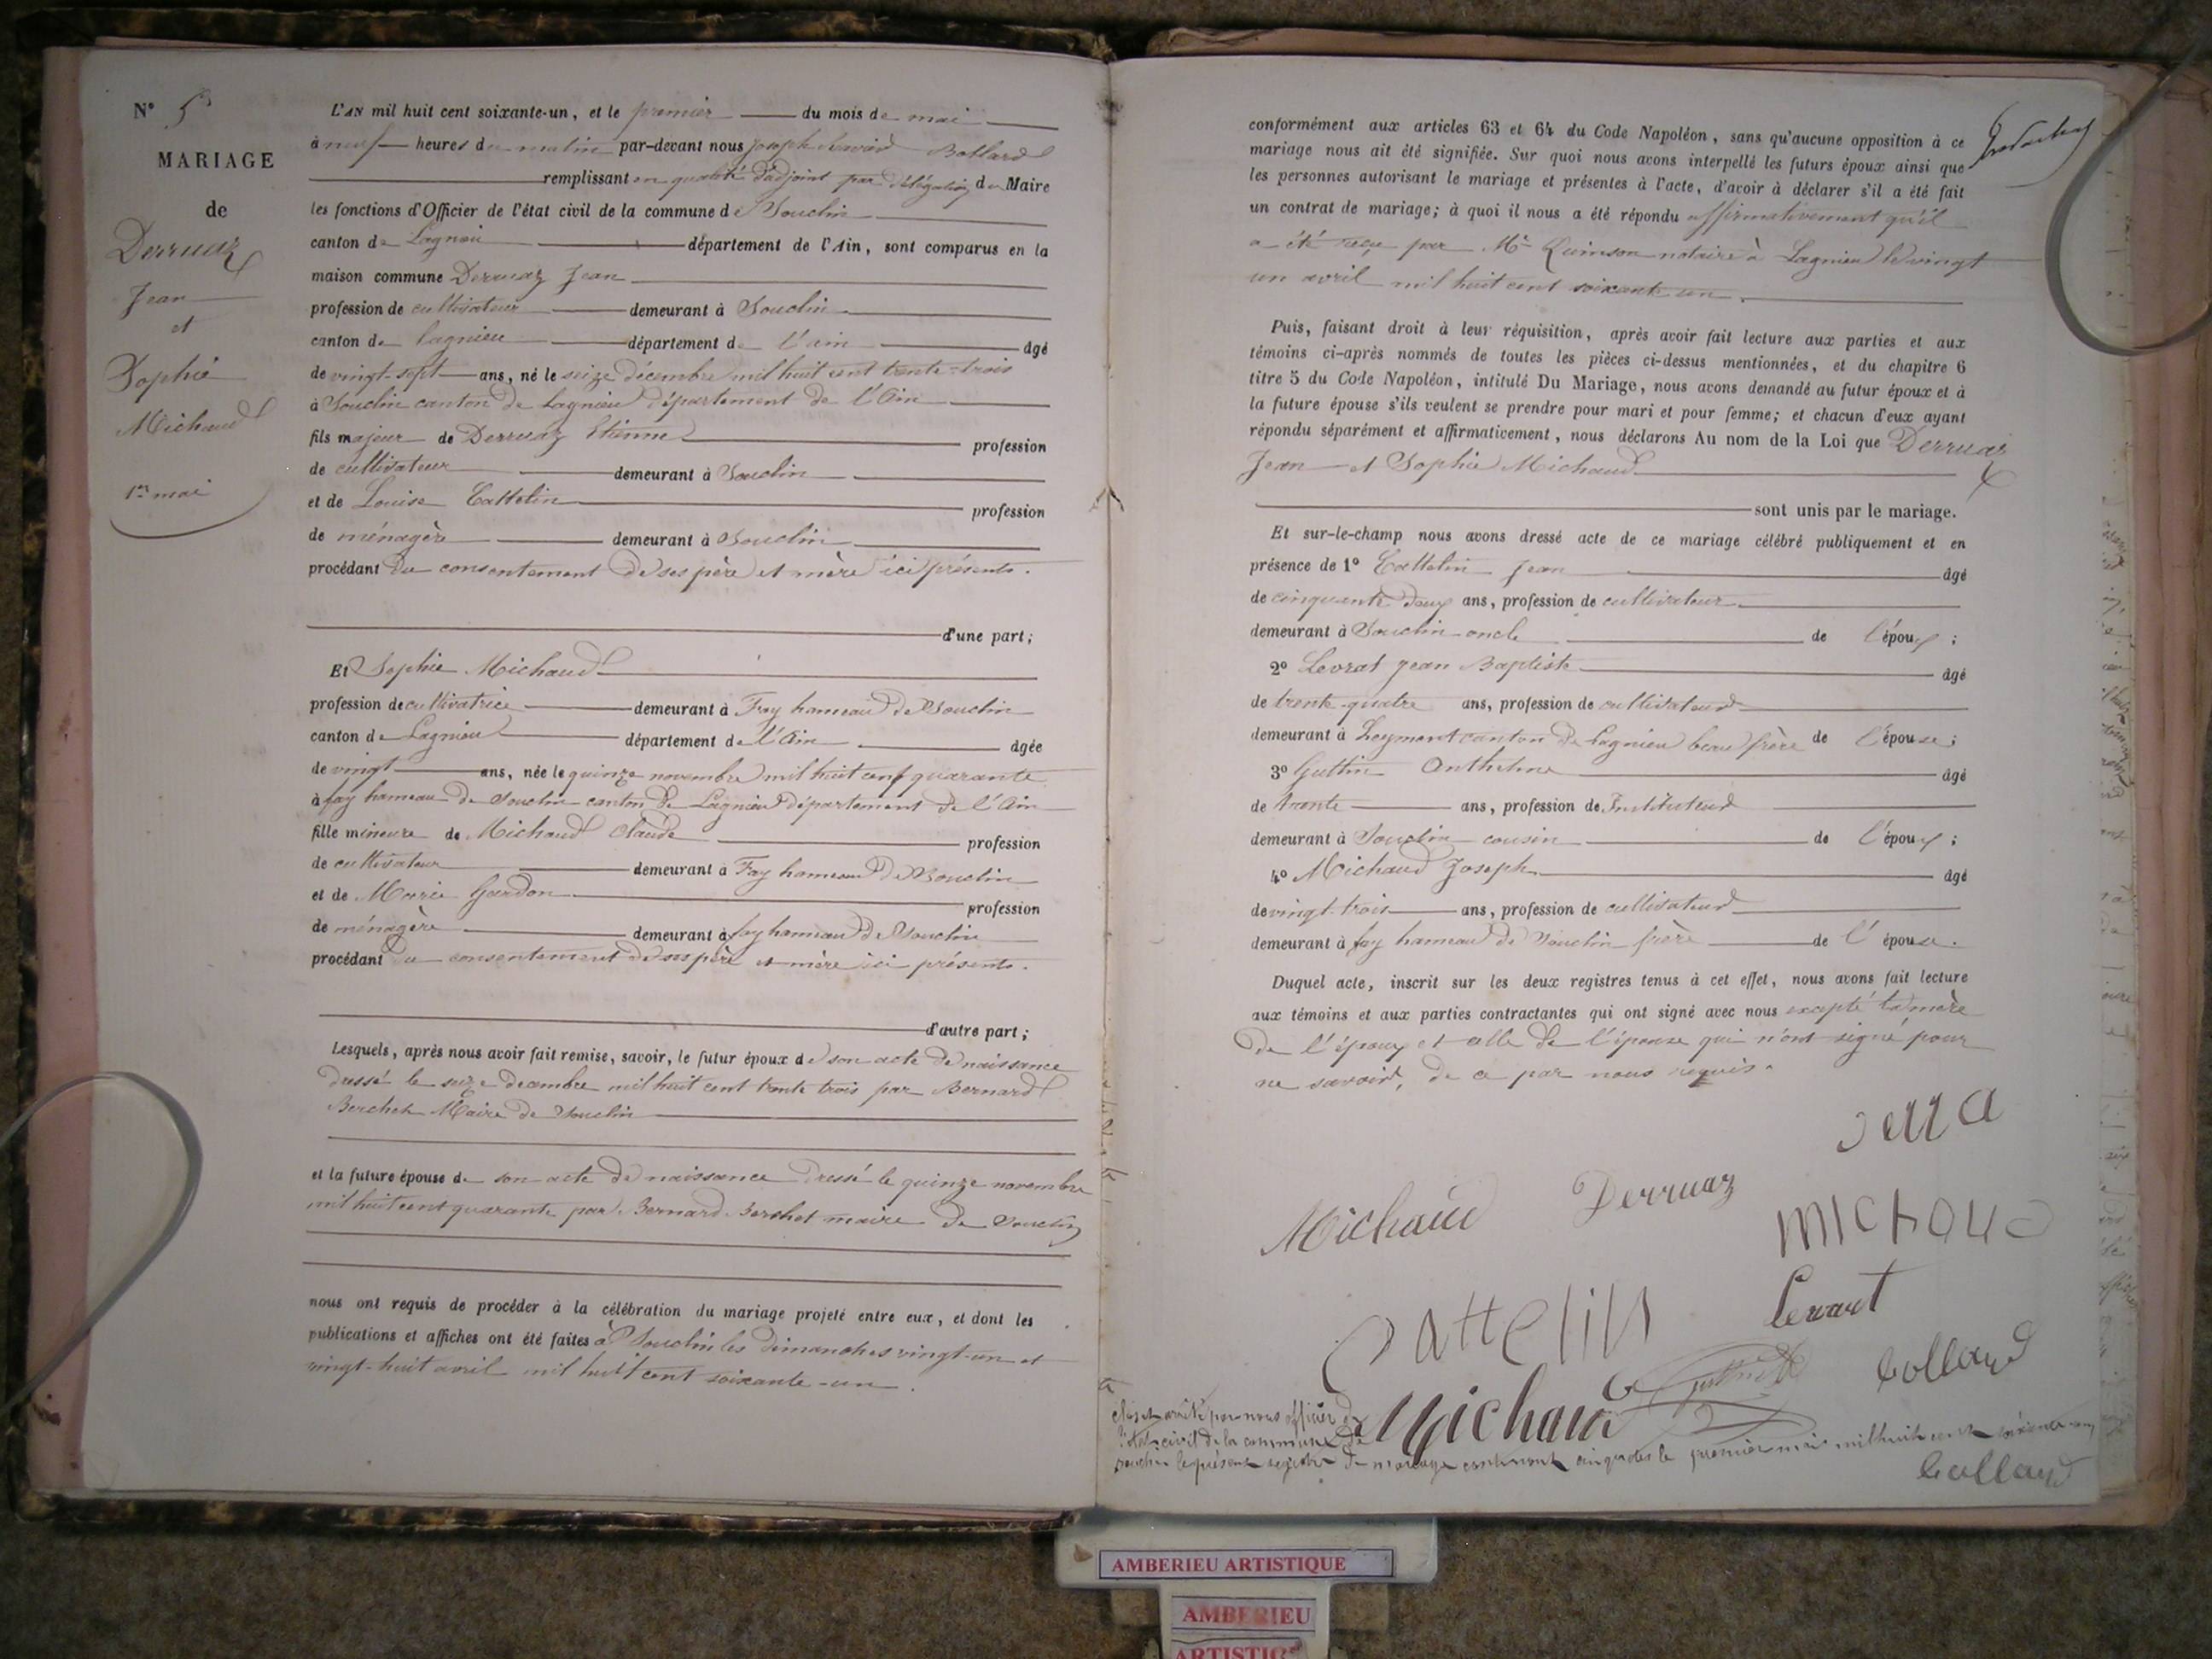 N° 5
MARIAGE
de
Derruaz
Jean
et
Sophie
Michaud
1er mai
L'AN mil huit cent soixante-un, et le premier du mois de mai
à neuf heures du matin par-devant nous Joseph Bollard
remplissant en qualité d'adjoint par délégation du Maire
les fonctions d'Officier de l'état civil de la commune de Souclin
canton de Lagnieu département de l'Ain, sont comparus en la
maison commune Derruaz Jean
profession de cultivateur demeurant à Souclin
canton de Lagnieu département de l'ain âgé
de vingt-sept ans, né le seize décembre mil huit cent trente-trois
à Souclin canton de Lagnieu département de l'Ain
fils majeur de Derruaz Etienne profession
de cultivateur demeurant à Souclin
et de Louise Cattelin profession
de ménagère demeurant à Souclin
procédant du consentement de ses père et mère ici présents.
d'une part;
Et Sophie Michaud
profession de cultivatrice demeurant à Fay hameau de Souclin
canton de Lagnieu département de l'Ain âgée
de vingt ans, née le quinze novembre mil huit cent quarante
à fay hameau de Souclin canton de Lagnieu département de l'Ain
fille mineure de Michaud Claude profession
de cultivateur demeurant à Fay hameau de Souclin
et de Marie Gardon profession
de ménagère demeurant à fay hameau de Souclin
procédant du consentement de ses père et mère ici présents.
d'autre part;
Lesquels, après nous avoir fait remise, savoir, le futur époux de son acte de naissance
dressé le seize decembre mil huit cent trente trois par Bernard
Berchet Maire de Souclin
et la future épouse de son acte de naissance dressé le quinze novembre
mil huit cent quarante par Bernard Berchet maire de Souclin
nous ont requis de procéder à la célébration du mariage projeté entre eux, et dont les
publications et affiches ont été faites à Souclin les dimanches vingt-un et
vingt-huit avril mil huit cent soixante-un.
conformément aux articles 63 et 64 du Code Napoléon, sans qu'aucune opposition à ce
mariage nous ait été signifiée. Sur quoi nous avons interpellé les futurs époux ainsi que
les personnes autorisant le mariage et présentes à l'acte, d'avoir à déclarer s'il a été fait
un contrat de mariage; à quoi il nous a été répondu affirmativement qu'il
a été reçu par Me Quinson notaire à Lagnieu le vingt
un avril mil huit cent soixante un.
Puis, faisant droit à leur réquisition, après avoir fait lecture aux parties et aux
témoins ci-après nommés de toutes les pièces ci-dessus mentionnées, et du chapitre 6
titre 5 du Code Napoléon, intitulé Du Mariage, nous avons demandé au futur époux et à
la future épouse s'ils veulent se prendre pour mari et pour femme; et chacun d'eux ayant
répondu séparément et affirmativement, nous déclarons Au nom de la Loi que Derruaz
Jean et Sophie Michaud
sont unis par le mariage.
Et sur-le-champ nous avons dressé acte de ce mariage célébré publiquement et en
présence de 1° Cattelin Jean âgé
de cinquante deux ans, profession de cultivateur
demeurant à Souclin oncle de l'époux;
2° Levrat Jean Baptiste âgé
de trente-quatre ans, profession de cultivateur
demeurant à Leyment canton de Lagnieu beau frère de l'épouse;
3° Guttin Anthelme âgé
de trente ans, profession de Instituteur
demeurant à Souclin cousin de l'époux;
4° Michaud Joseph âgé
de vingt-trois ans, profession de cultivateur
demeurant à fay hameau de Souclin frère de l'épouse.
Duquel acte, inscrit sur les deux registres tenus à cet effet, nous avons fait lecture
aux témoins et aux parties contractantes qui ont signé avec nous excepté la mère
de l'époux et celle de l'épouse qui n'ont signé pour
ne savoir, de ce par nous requis.
Derra
Michaud Derruaz
Michaud
Cattelin Levrat
Michaud Guttin Bollard
clos et arrêté par nous officier de
l'état civil de la commune de
souclin le présent registre de mariage contenant cinq actes le premier mai mil huit cent soixante un
Bollard
AMBERIEU ARTISTIQUE
AMBERIEU
ARTISTIQ